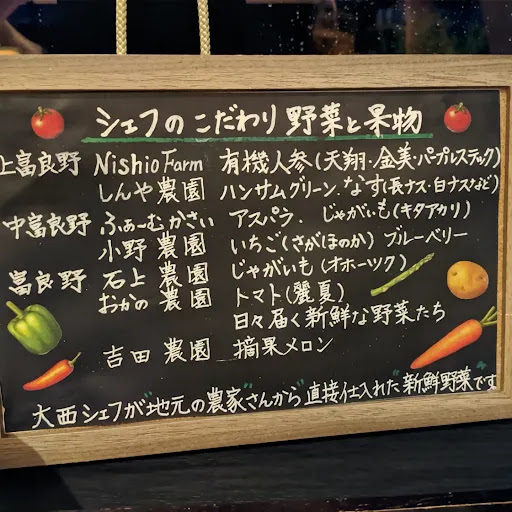 シェフのこだわり野菜と果物
上富良野 Nishio Farm 有機人参(天翔・金美・パープルスティック)
しんや農園 ハンサムグリーン、なす(長ナス・白ナスなど)
中富良野 ふぁーむかさい アスパラ、じゃがいも(キタアカリ)
小野農園 いちご(さがほのか) ブルーベリー
富良野 石上農園 じゃがいも(オホーツク)
おかの農園 トマト(麗夏)
日々届く新鮮な野菜たち
吉田農園 摘果メロン
大西シェフが地元の農家さんから直接仕入れた新鮮野菜です